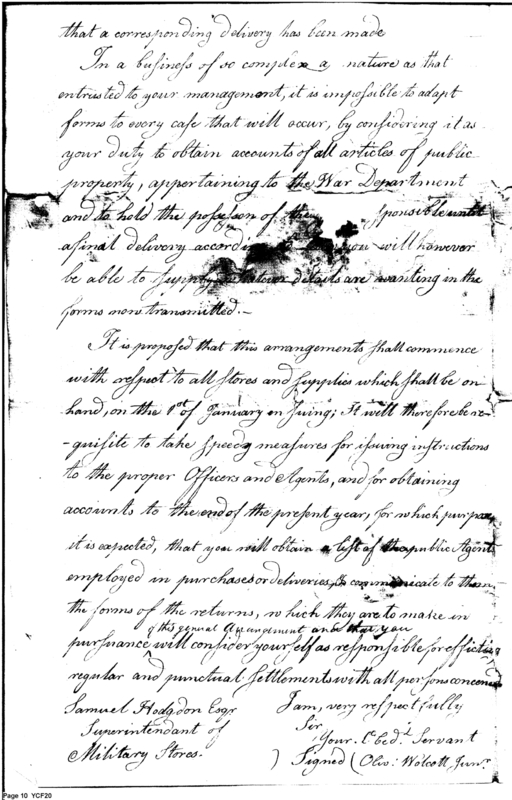 that a corresponding delivery has been made
In a business of so complex a nature as that
entrusted to your management, it is impossible to adapt
forms to every case that will occur, by considering it as
your duty to obtain accounts of all articles of public
property, appertaining to the War Department
and to hold the possesson of the sponsible until
a final delivery you will however
be able to supply details are wanting in the
forms now transmitted.—
It is proposed that this arrangements shall commence
with respect to all stores and supplies which shall be on
hand, on the 1st of January ensuing; It will therefore be re-
-quisite to take speedy measures for issuing instructions
to the proper Officers and Agents, and for obtaining
accounts to the end of the present year, for which purpose,
it is expected, that you will obtain a list of the public Agents
employed in purchases or deliveries, to communicate to them,
the forms of the returns, which they are to make in
of this general Arrangement and that you
pursuance will consider yourself as responsible for effecting
regular and punctual settlements with all persons concerned
Samuel Hodgdon Esqr I am, very respectfully
Superintendant of Sir
Military Stores. Your Obed. Servant
) Signed ( Oliv: Wolcott Junr.
Page 10 YCF20